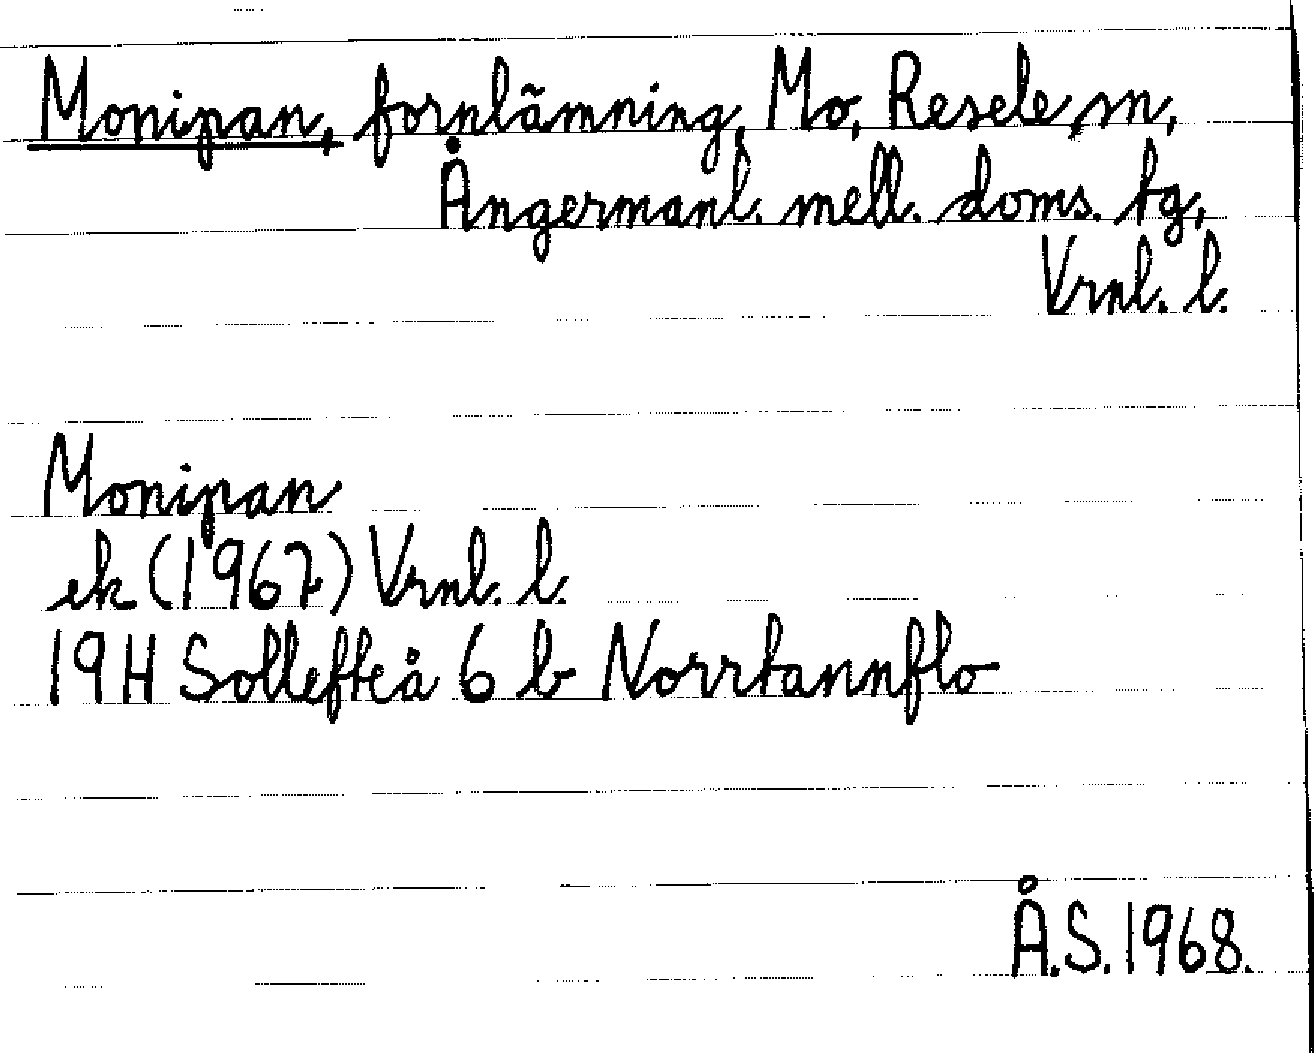 Monipan, fornlämning, Mo, Resele sn,
Ångermanl. mell. doms. tg,
Vrnl. l.
Monipan
ek (1967) Vrnl. l.
19H Sollefteå 6 b Norrtannflo
Å.S. 1968.